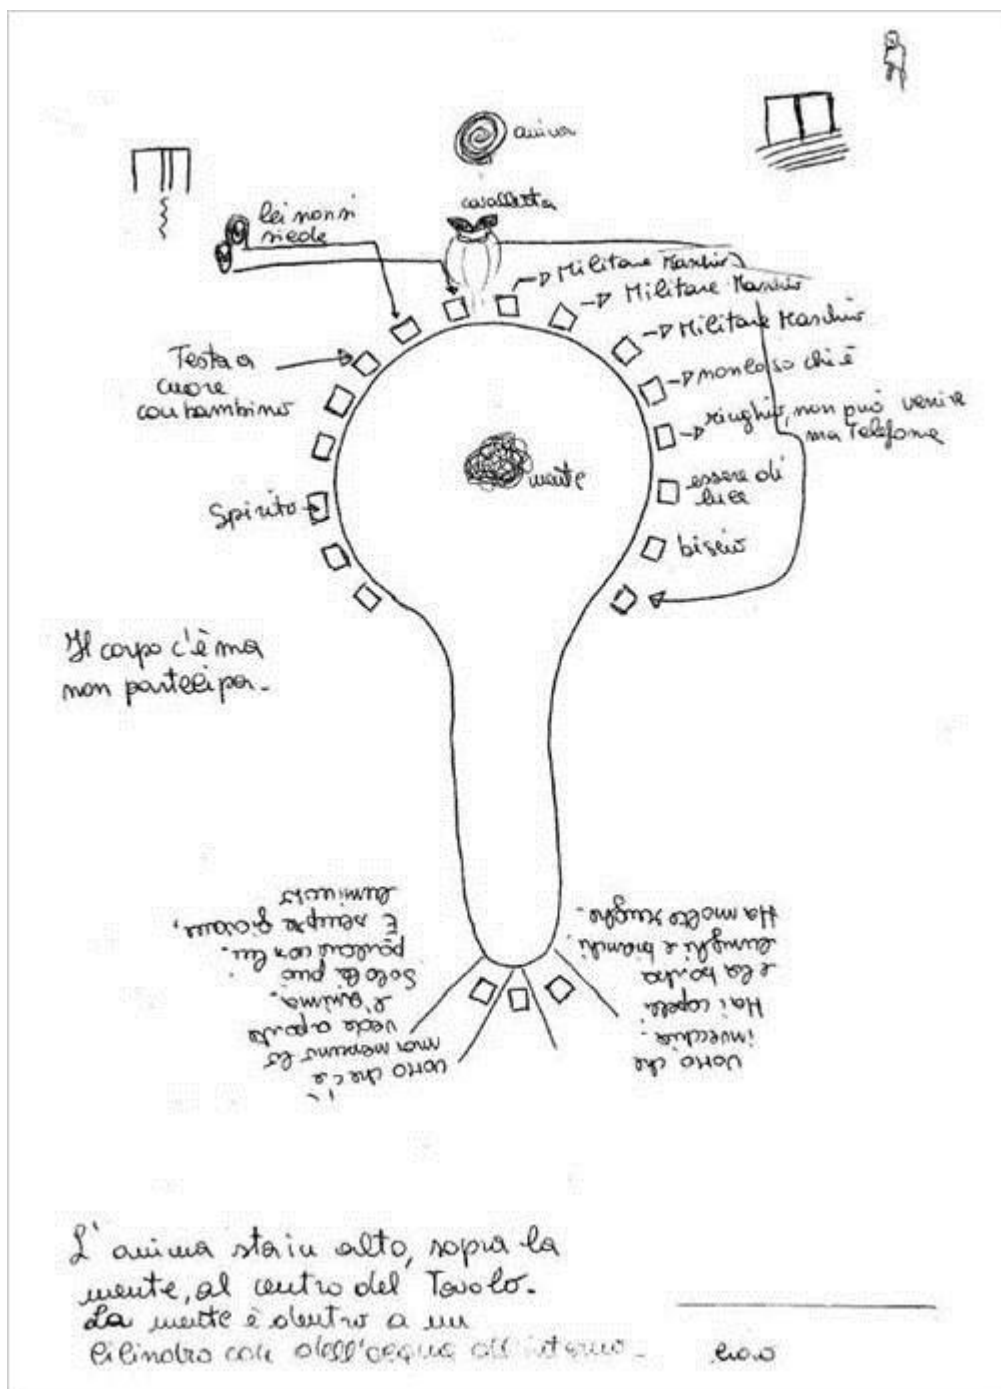 anima
cavalletta
lei non si
siede
Militare Maschio
Militare Maschio
Militare Maschio
non lo so chi è
ringhio, non può venire
ma telefona
essere di
luce
biscio
Testa a
cuore
con bambino
Spirito
mente
Il corpo c'è ma
non partecipa.
uomo che c'è
ma nessuno lo
vede a parte
l'anima.
Solo lei può
parlare con lui.
È sempre giovane,
luminoso
uomo che
invecchia.
Ha i capelli
e la barba
lunghi e bianchi.
Ha molte rughe.
L'anima sta in alto, sopra la
mente, al centro del Tavolo.
La mente è dentro a un
cilindro con dell'acqua all'interno.